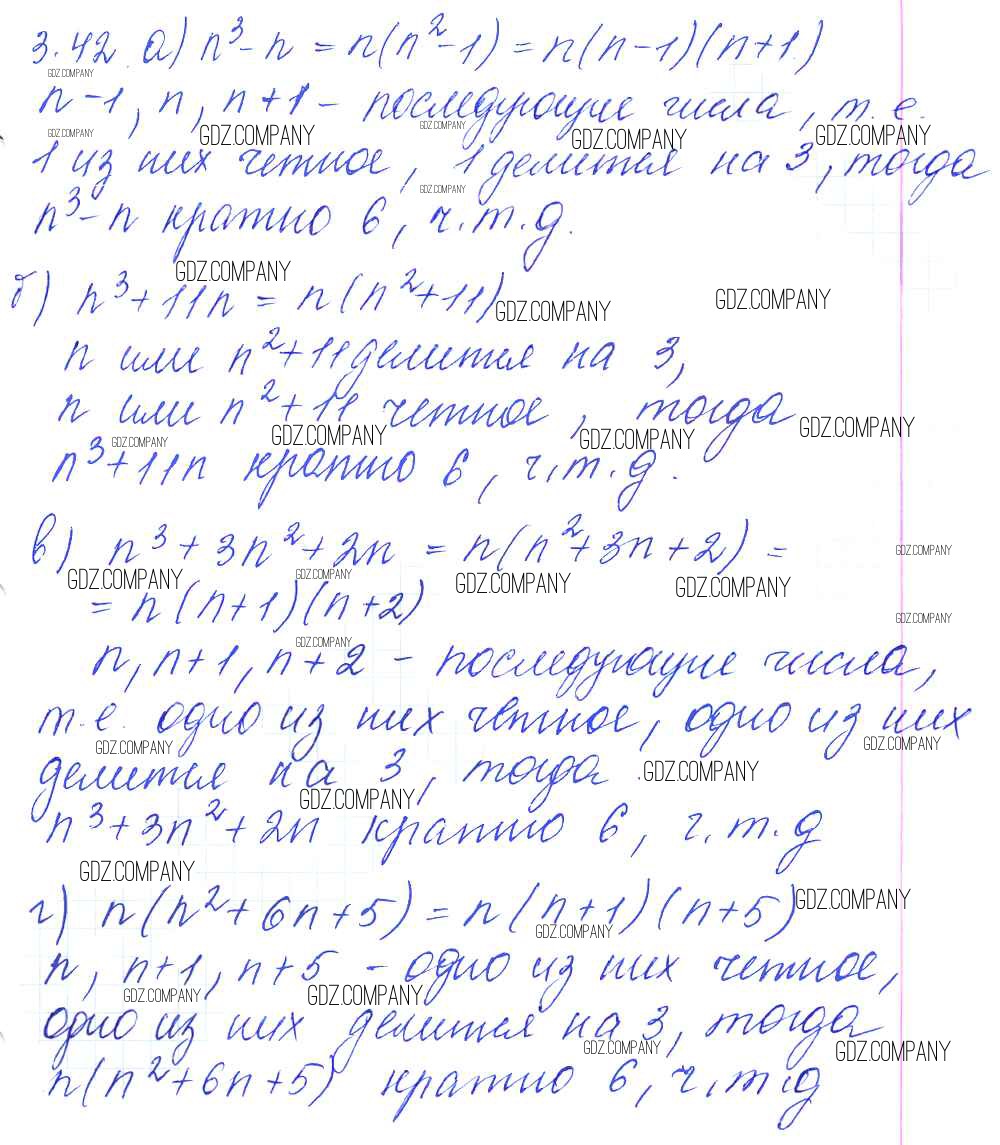 3.42 а) n³-n = n(n²-1) = n(n-1)(n+1)
GDZ.COMPANY
n-1, n, n+1 – последующие числа, т.е.
GDZ.COMPANY GDZ.COMPANY GDZ.COMPANY GDZ.COMPANY GDZ.COMPANY
1 из них четное, 1 делится на 3, тогда
GDZ.COMPANY
n³-n кратно 6, ч.т.д.
GDZ.COMPANY
б) n³+11n = n(n²+11)
GDZ.COMPANY GDZ.COMPANY
n или n²+11 делится на 3,
n или n²+11 четное, тогда
GDZ.COMPANY GDZ.COMPANY GDZ.COMPANY GDZ.COMPANY
n³+11n кратно 6, ч.т.д.
в) n³+3n²+2n = n(n²+3n+2) =
GDZ.COMPANY
GDZ.COMPANY GDZ.COMPANY GDZ.COMPANY GDZ.COMPANY
= n(n+1)(n+2)
GDZ.COMPANY
GDZ.COMPANY
n, n+1, n+2 – последующие числа,
т.е. одно из них четное, одно из них
GDZ.COMPANY GDZ.COMPANY
делится на 3, тогда
GDZ.COMPANY
GDZ.COMPANY
n³+3n²+2n кратно 6, ч.т.д
GDZ.COMPANY
г) n(n²+6n+5) = n(n+1)(n+5)
GDZ.COMPANY
GDZ.COMPANY
n, n+1, n+5 – одно из них четное,
GDZ.COMPANY GDZ.COMPANY
одно из них делится на 3, тогда
GDZ.COMPANY GDZ.COMPANY
n(n²+6n+5) кратно 6, ч.т.д